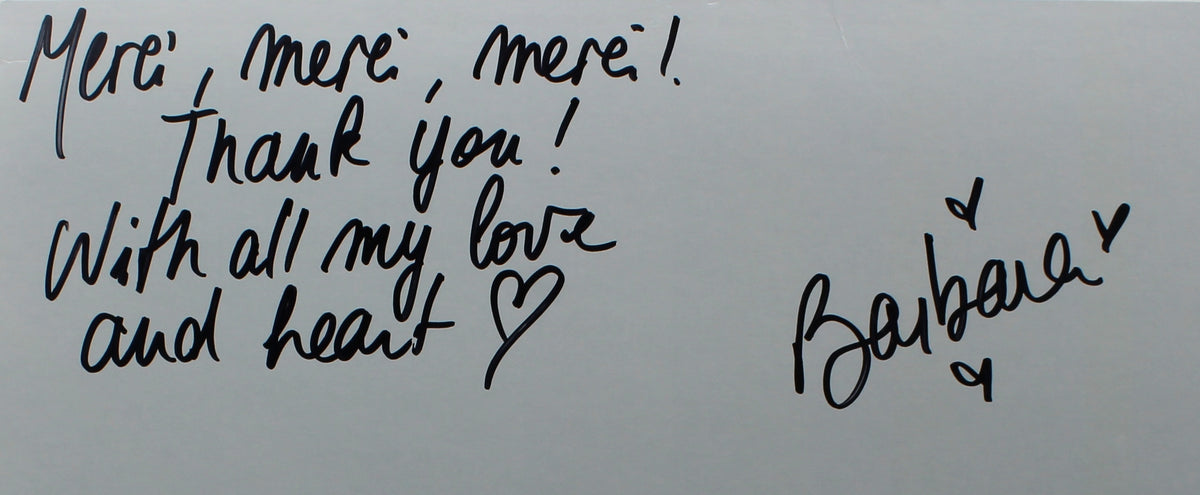 Merci, merci, merci!
Thank you!
With all my love
and heart ♡
Barbara